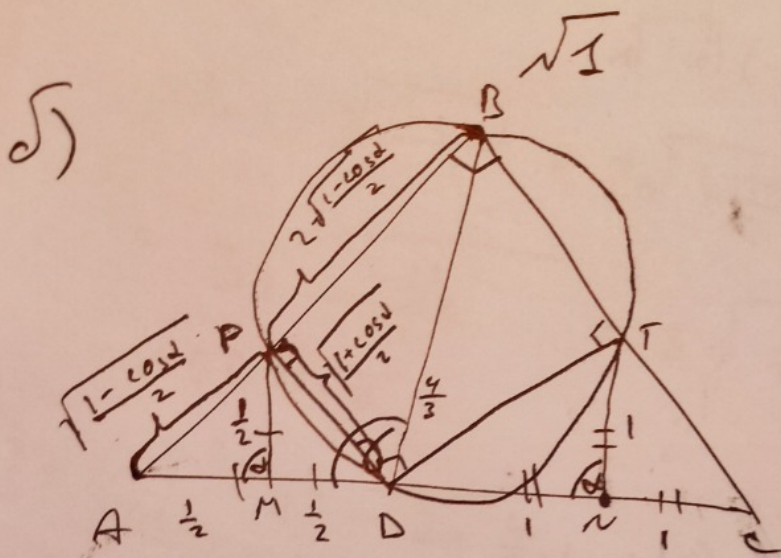 √1
б)
B
2√(1-cosα)/2
√(1-cosα)/2
P
√(1+cosα)/2
4/3
T
1/2
α
1
α
A
1/2
M
1/2
D
1
N
1
C